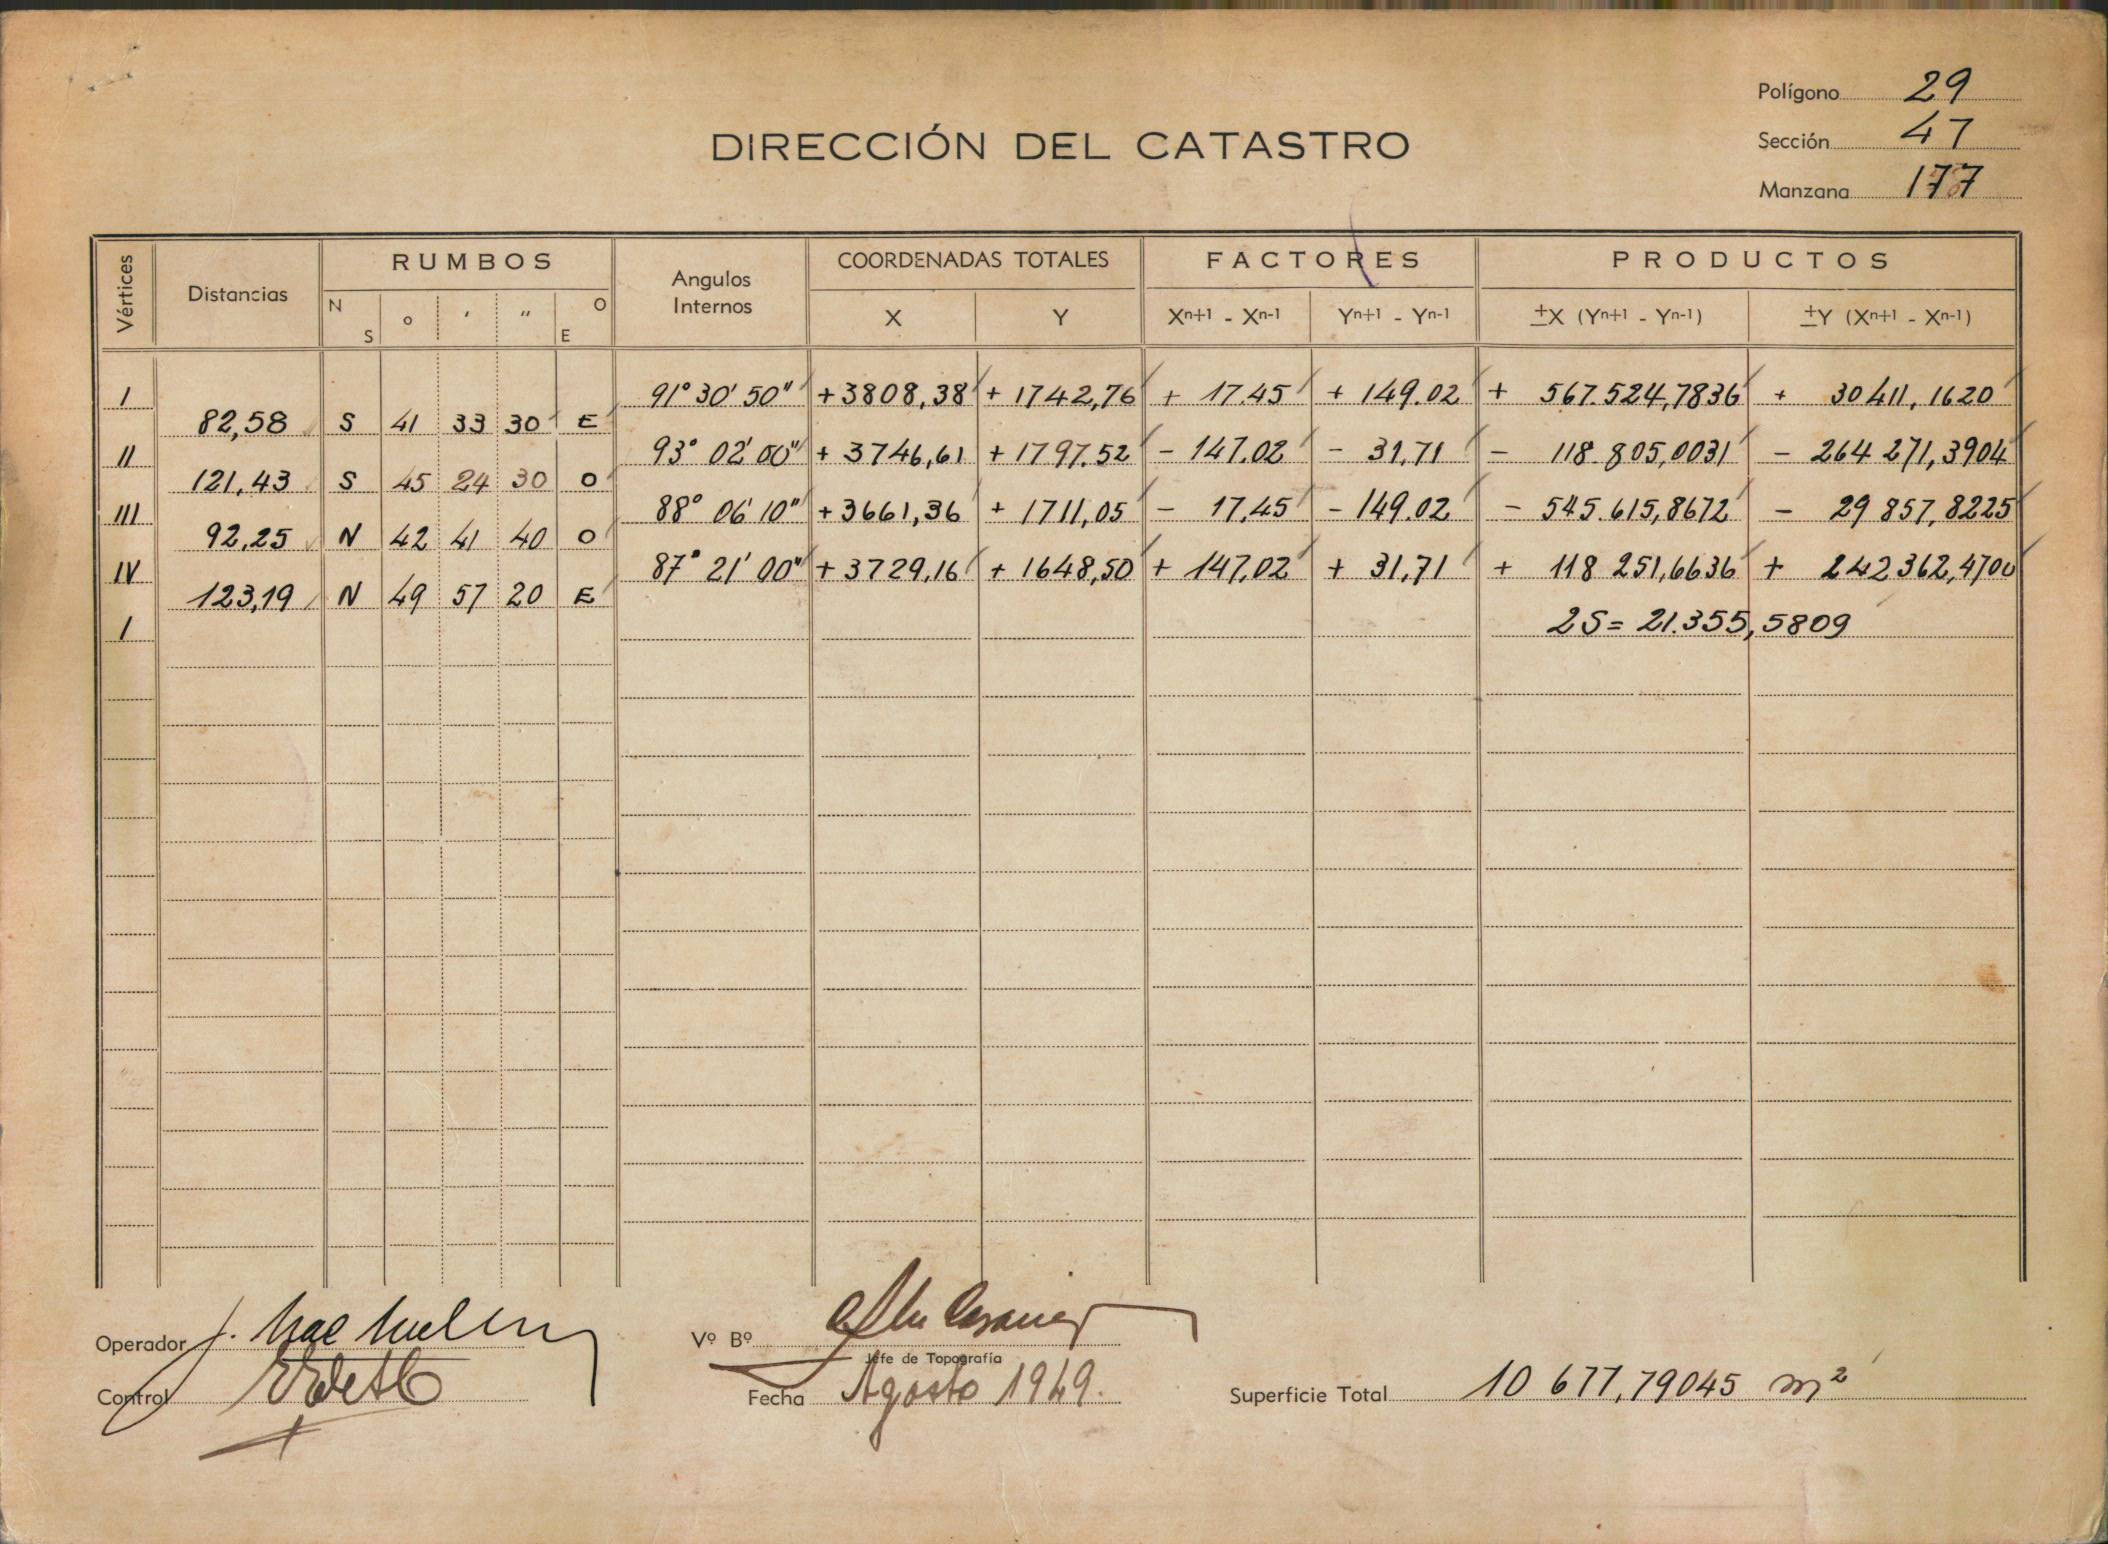 Polígono 29
DIRECCIÓN DEL CATASTRO
Sección 47
Manzana 177
Vértices Distancias RUMBOS Angulos Internos COORDENADAS TOTALES FACTORES PRODUCTOS
N S ° ′ ″ O E X Y Xn+1 - Xn-1 Yn+1 - Yn-1 ±X (Yn+1 - Yn-1) ±Y (Xn+1 - Xn-1)
I 91° 30' 50" +3808,38 + 1742,76 + 17.45 + 149.02 + 567.524,7836 + 30411,1620
82,58 S 41 33 30 E
II 93° 02' 00" + 3746,61 + 1797.52 - 147.02 - 31,71 - 118.805,0031 - 264 271,3904
121,43 S 45 24 30 O
III 88° 06' 10" +3661,36 + 1711,05 - 17,45 - 149.02 - 545.615,8672 - 29 857,8225
92,25 N 42 41 40 O
IV 87° 21' 00" + 3729,16 + 1648,50 + 147,02 + 31,71 + 118 251,6636 + 242362,4700
123,19 N 49 57 20 E
I 2S = 21.355,5809
Operador
Vº Bº
Jefe de Topografía
Control
Fecha Agosto 1949.
Superficie Total 10 677,79045 m²